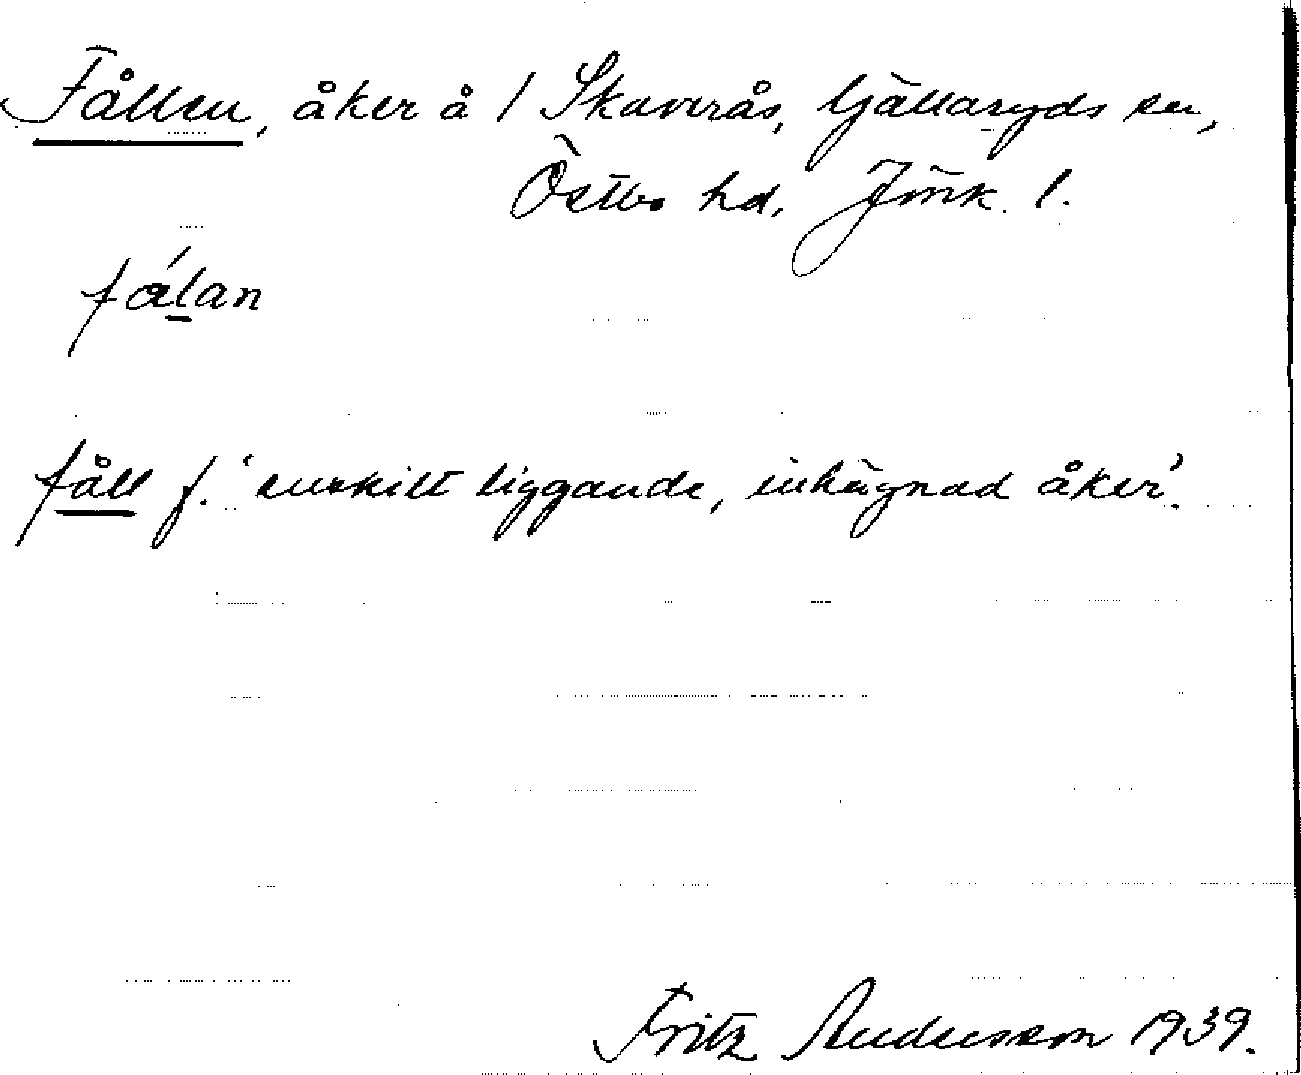 Fållen, åker å 1 Skaverås, Gällaryds sn,
Östbo hd, Jönk. l.
fǻlan
fåll f. 'enskilt liggande, inhägnad åker'.
Fritz Andersson 1939.